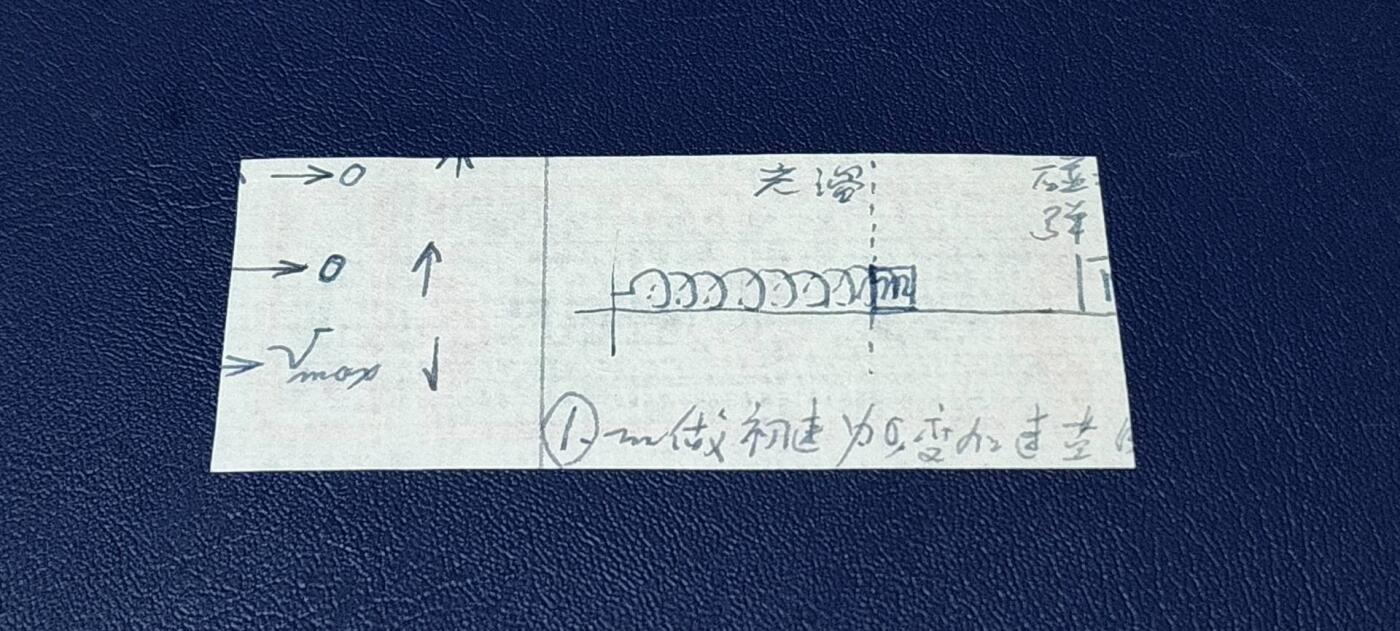 →0 ↑
→0 ↑
→Vmax ↓
光滑
弹
m
①m做初速为0,变加速